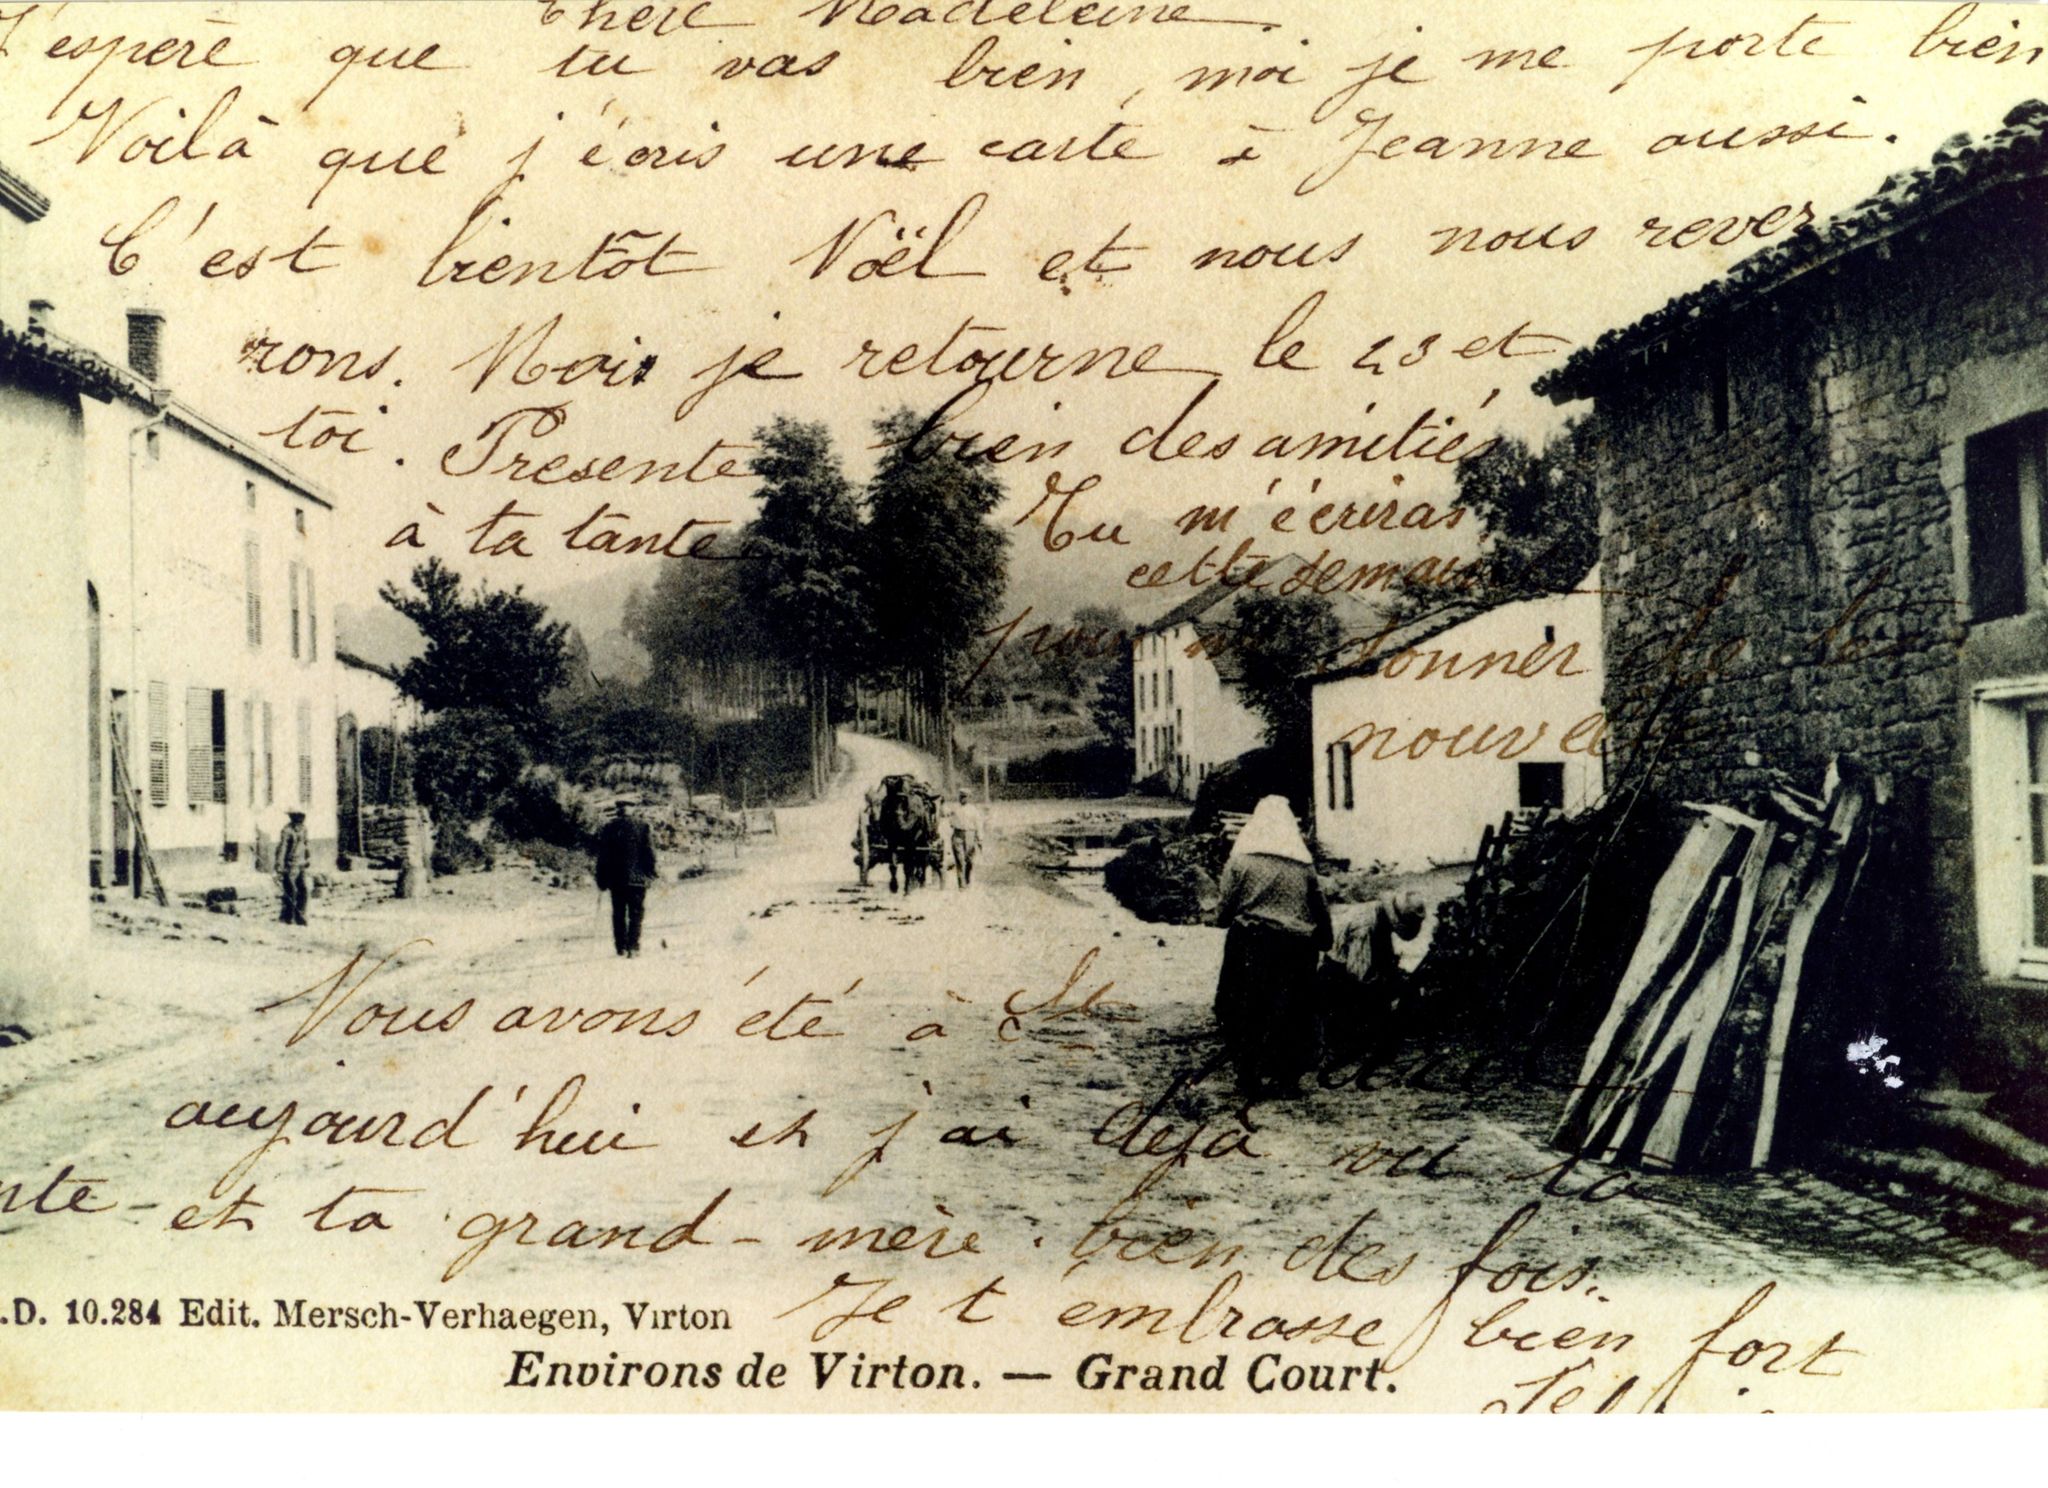 Chere Madeleine.
J'espère que tu vas bien, moi je me porte bien
Voilà que j'écris une carte à Jeanne aussi.
C'est bientôt Noël et nous nous rever
rons. Mais je retourne le 23 et
toi. Presente bien des amitiés
à ta tante
Tu m'écriras
cette semaine
pour me donner de les
nouvelles
Nous avons été à St
aujourd'hui et j'ai dejà vu ta
nte - et ta grand-mère. bien des fois.
Je t'embrasse bien fort
.D. 10.284 Edit. Mersch-Verhaegen, Virton
Environs de Virton. — Grand Court.